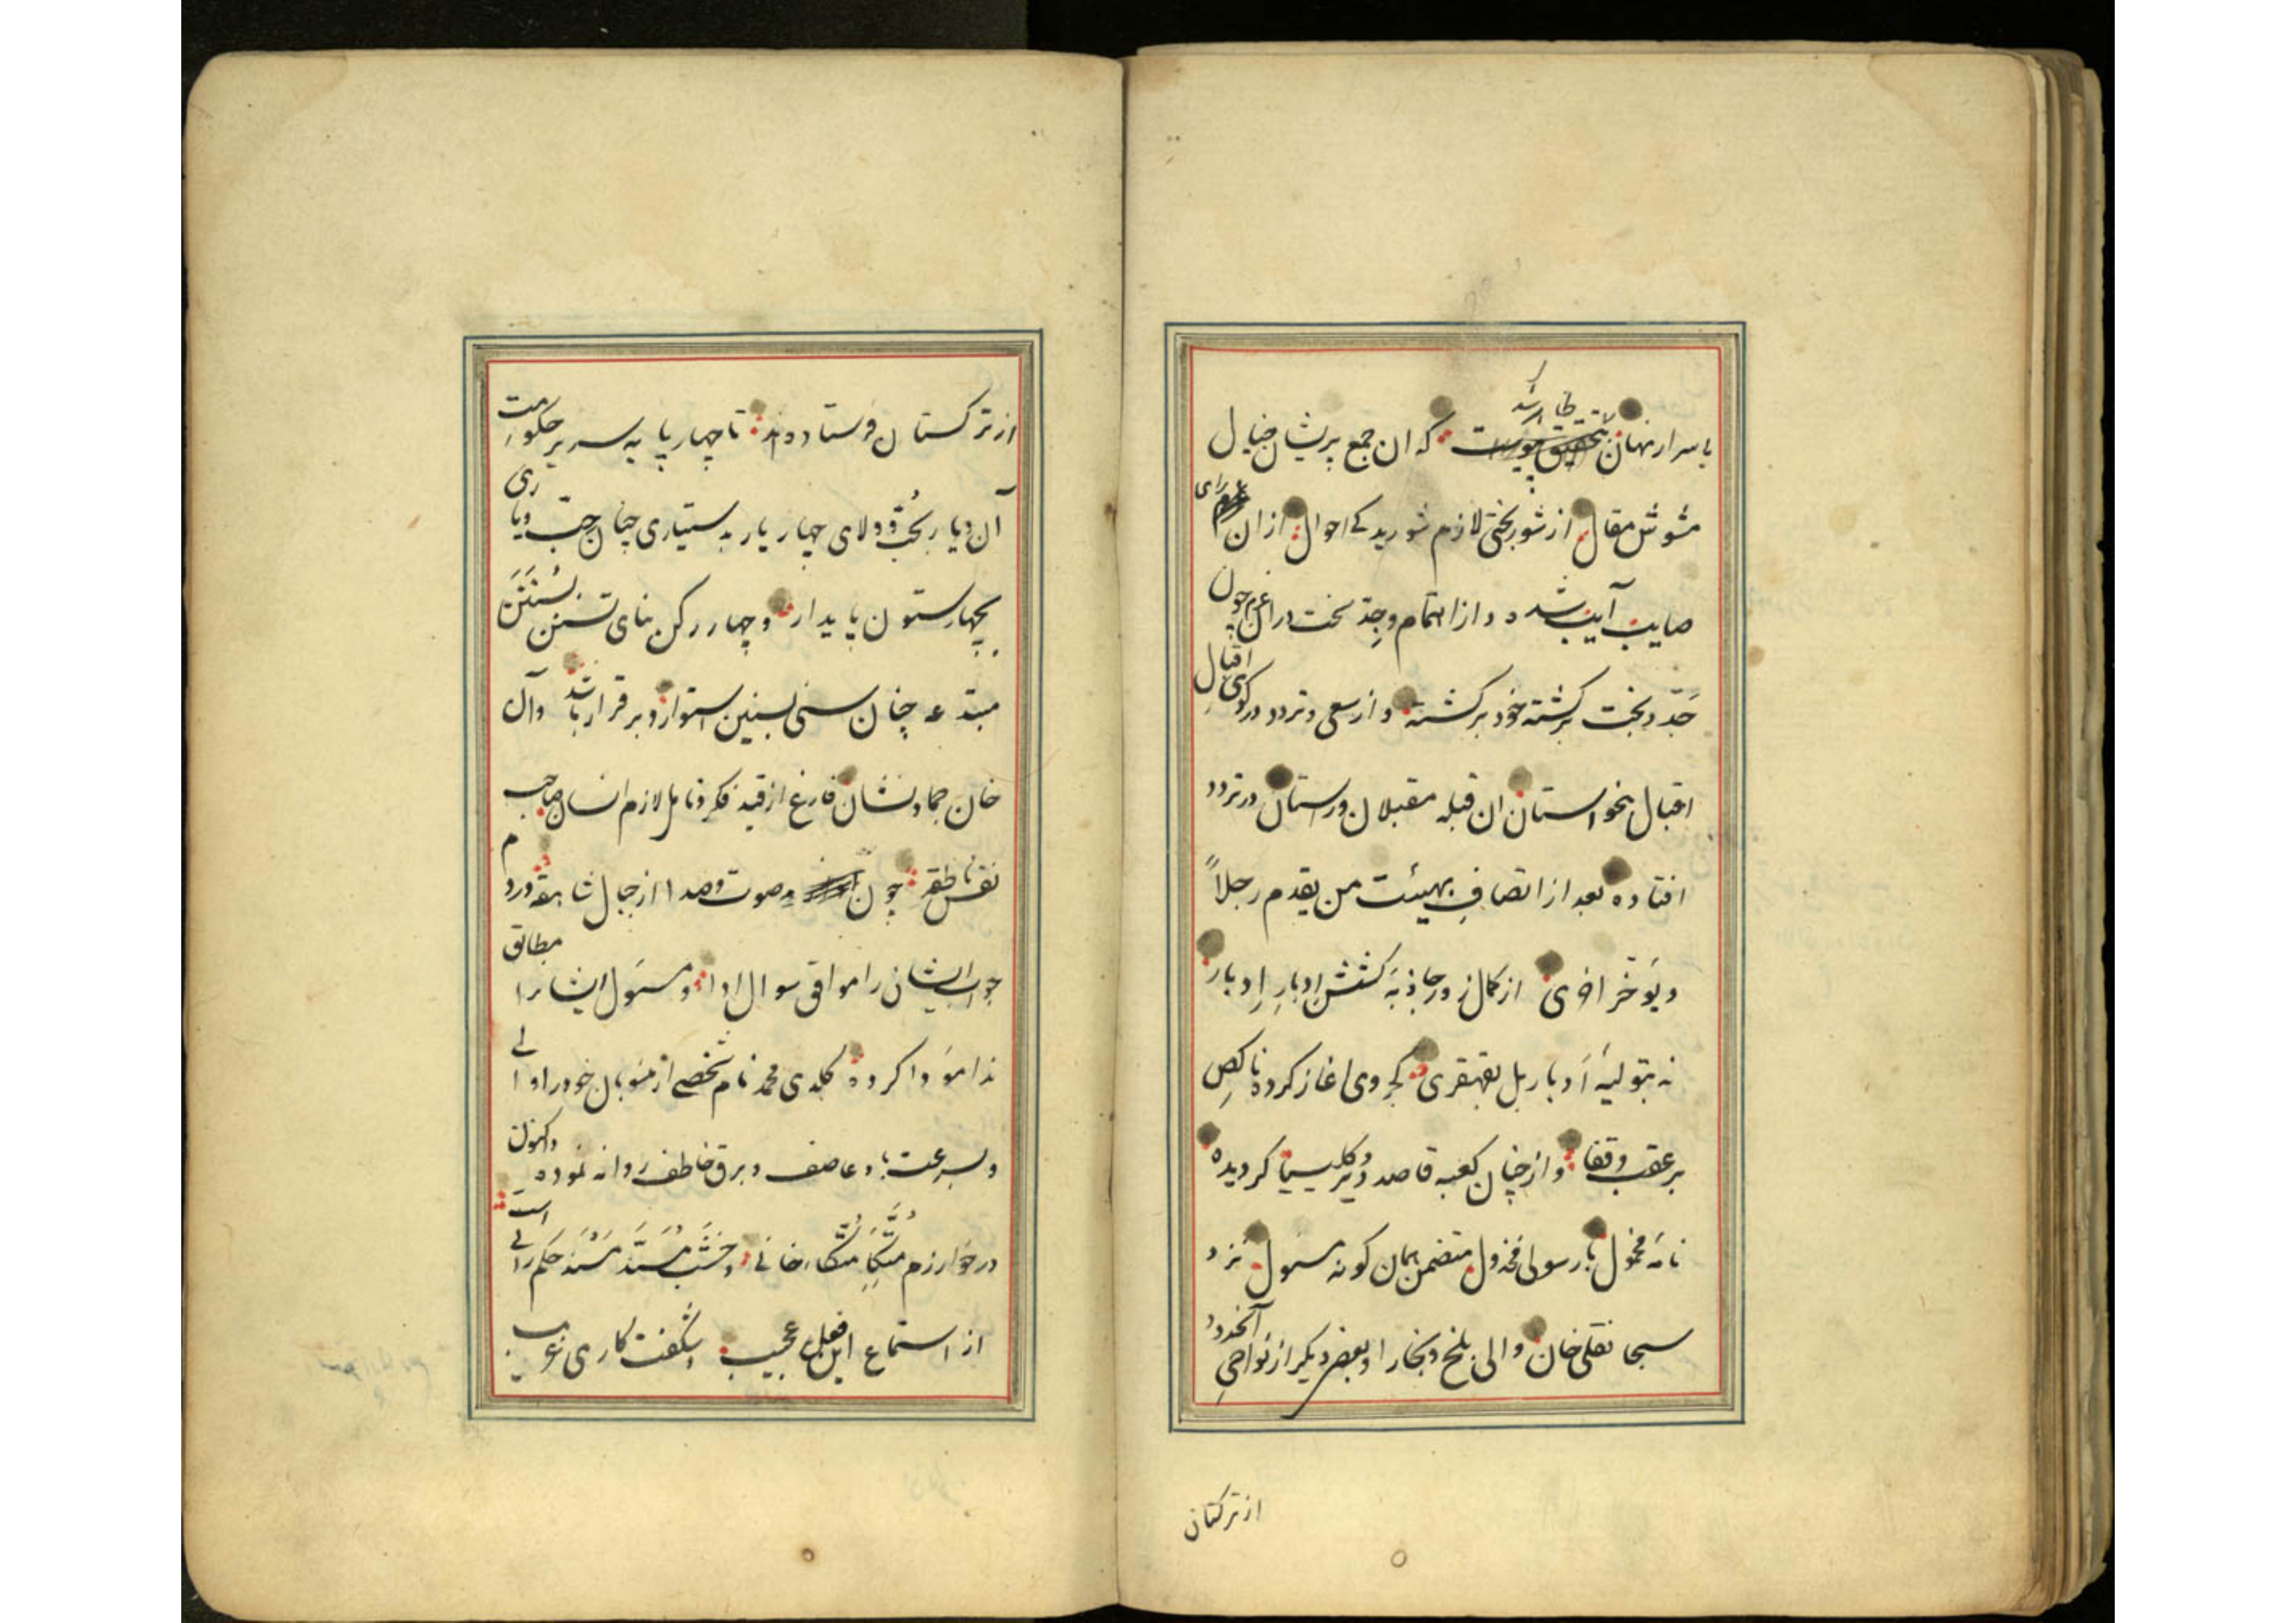 باسرار نهان که ان جمع پریشان خیال
مشوش مقال از شوربختی لازم شوریدکے احوال از ان رای
صایب آیب شده و از اهتمام و جدّ سخت در اغرای چون
جَدّ و بخت برکشته خود برکشته و از سعی و تردد در کوی اقبالِ
اقبال بخواستان ان قبله مقبلان و راستان در تردد
افتاده بعد از اتصافِ بهیئت من یقدم رجلاً
و یؤخّر اخری از کمال زور جاذبۀ کشش ادبارِ اِدبار
نه بتولیۀ اَدبار بل بقهقری کجروی اغاز کرده ناکصِ
بر عقب و قفا و از چنان کعبه قاصد دیر و کلیسیا کردیده
نامۀ مخمول با رسولی مخذول متضمن همان کونه مسئول نزد
سبحانقلی خان والی بلخ و بخارا و بعضی دیکر از نواحیِ آنحدود
از ترکستان
از ترکستان فرستاده اند تا چهار پایه سریر حکومتِ
آن دیار بحُبّ و ولای چهار یار بدستیاری چنان حبیب و یاری
بچهار ستون پایدار و چهار رکن بنای تسنن بسُنَنَ
مبتدعه چنان سنی بسنین استوار و برقرار باشد و آن
خان جماد نشان فارغ از قید فکر و تامل لازم انسان صاحب
نفس ناطقه چون صوت و صدا از جبال شاهقه در دم
جواب ایشان را موافق سوال ادا و مسئول ایشانرا مطابق
ندا مؤدا کرده کلدی محمد نام شخصی از منسوبان خود را والے
و بسرعت باد عاصف و برق خاطف روانه نموده واکنون
در خوارزم مُتَّکِاَ مُتَّکاء خانے و خَشَب مُسَنَّد مَسْنَد حکمرانے است
از استماع این فعل عجیب و شکفت کاری غریب